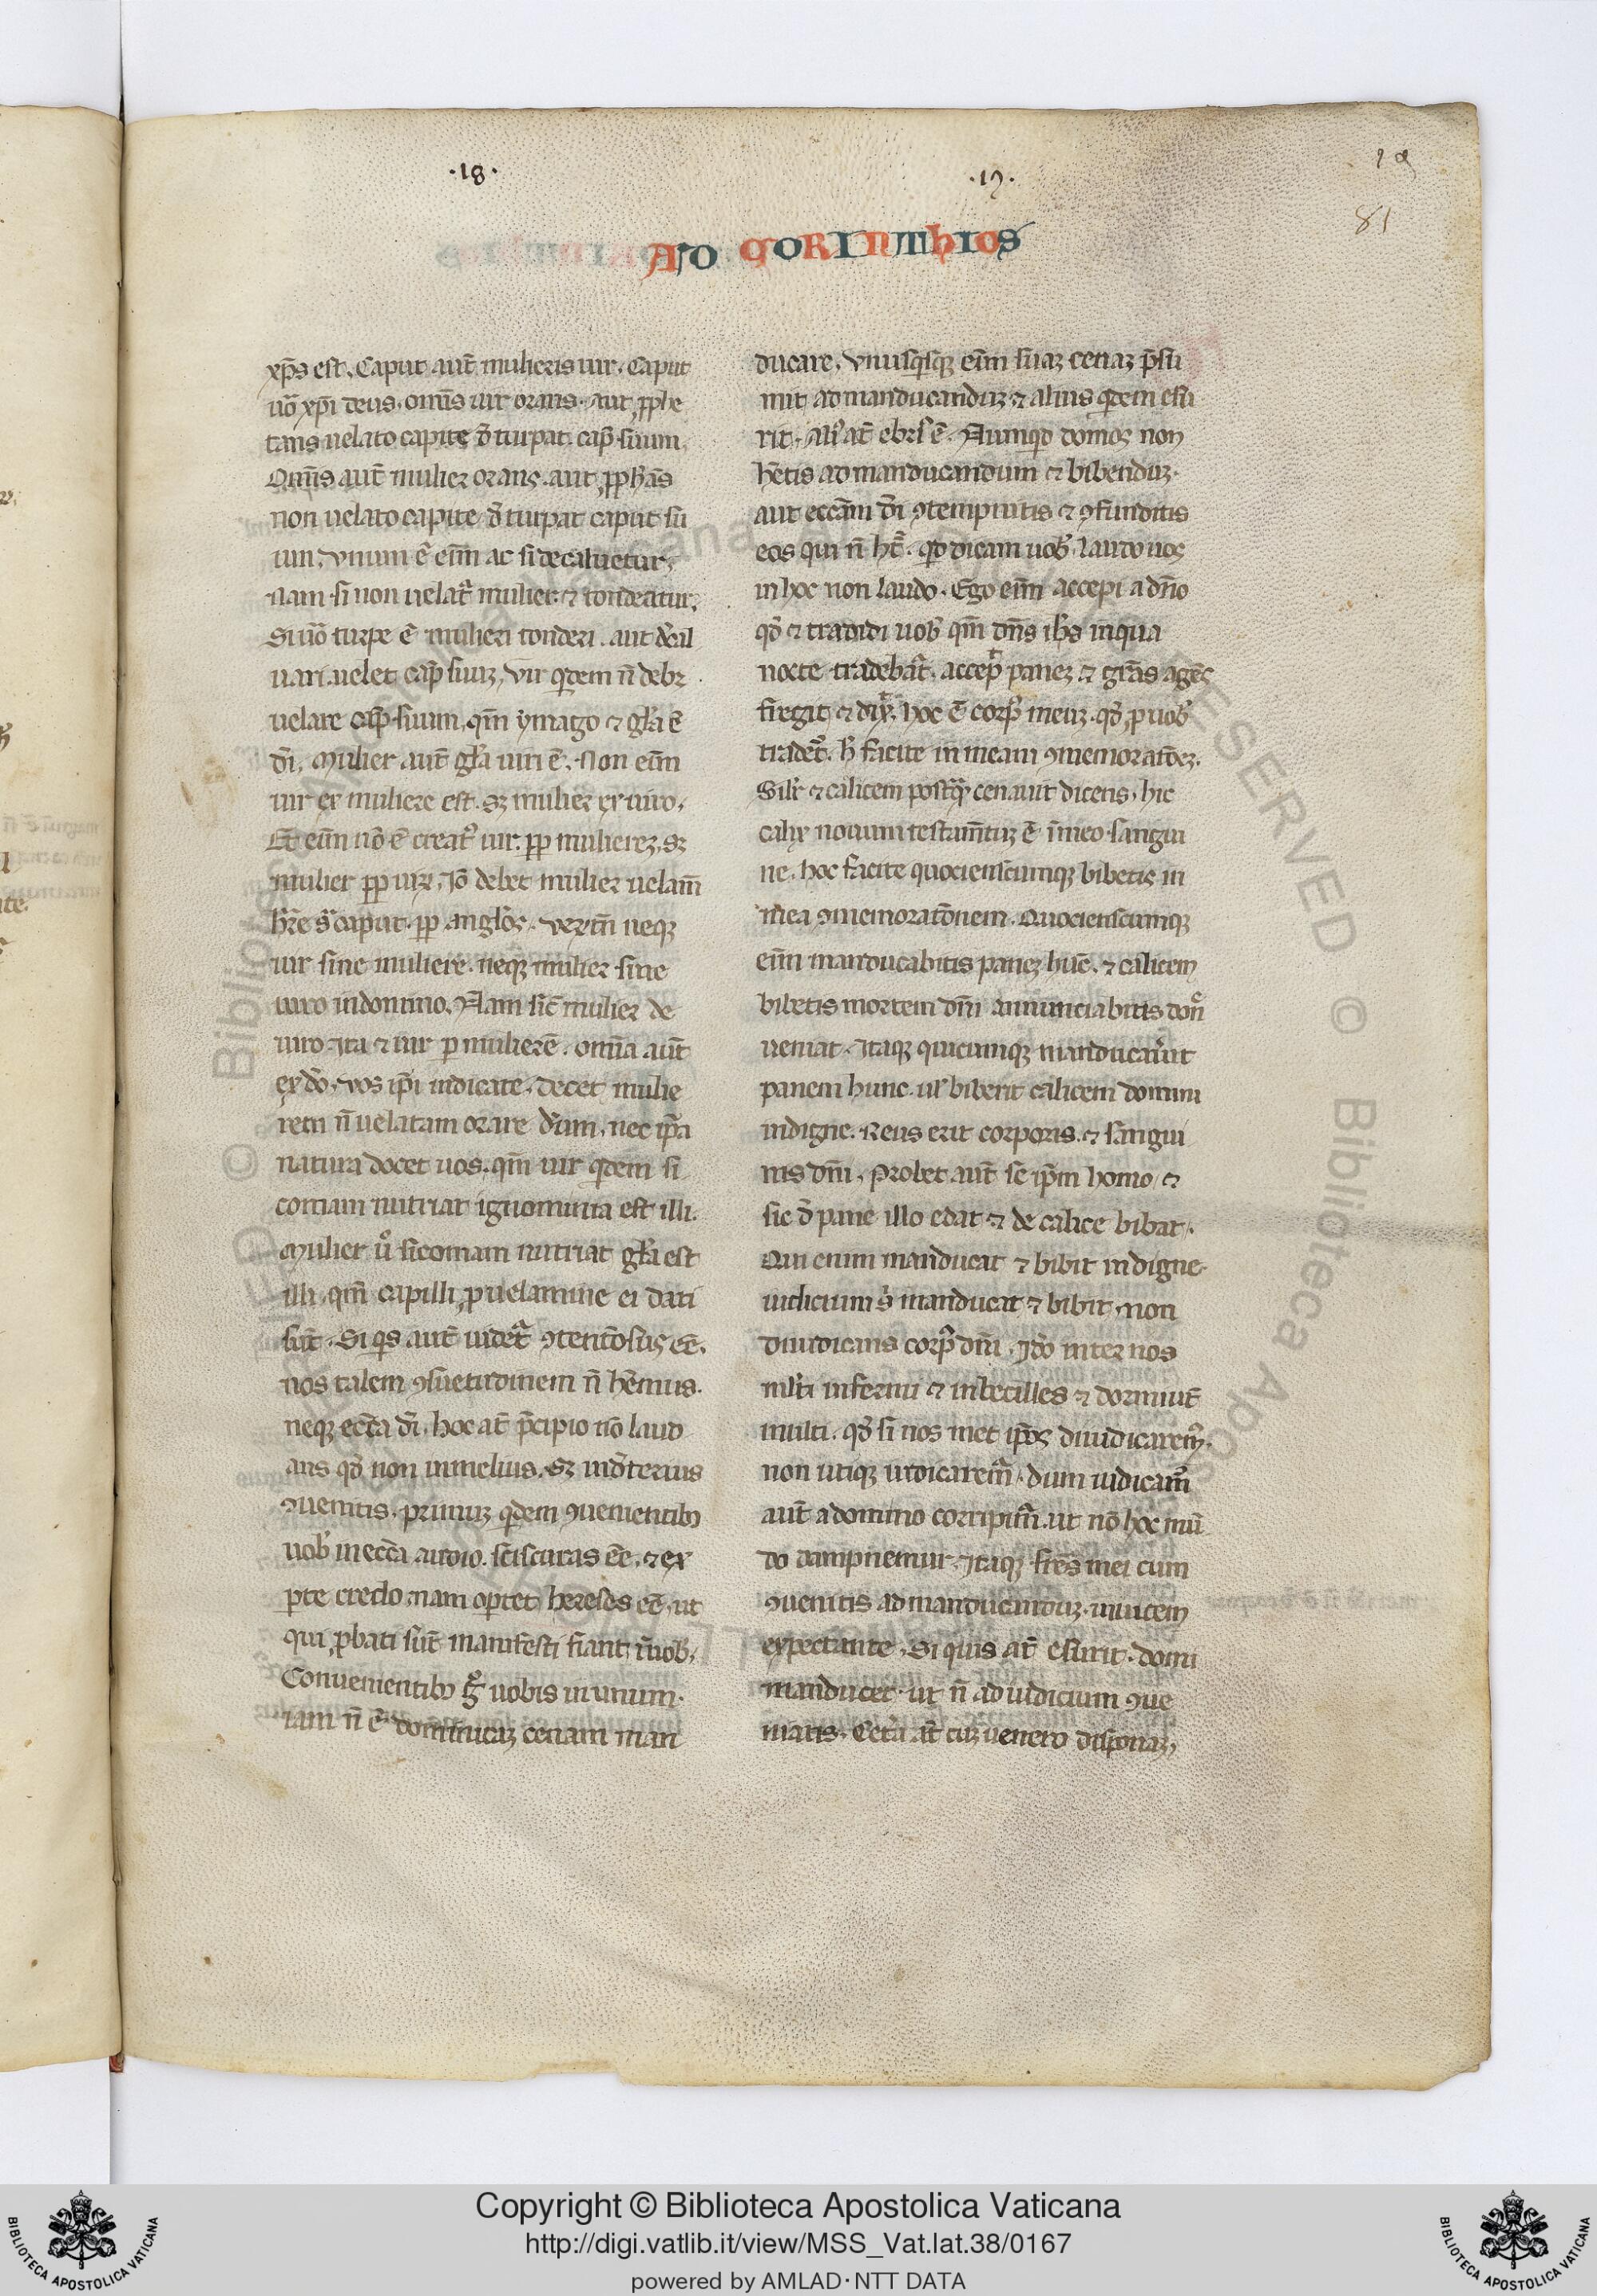 ·18·
·19·
81
AD CORINTHIOS
xp̄s est. Caput aut̄ mulieris uir. Caput
uō xp̄i deus. omīs uir orans. aut ꝓphe
tans uelato capite d̄ turpat. cap̄ suum.
Omīs aut̄ mulier orans. aut ꝓphāns
non uelato capite d̄ turpat caput su
um. vnum ē eīm ac si decaluetur.
Nam si non uelat̄ mulier. ⁊ tondeatur.
Si uō turpe ē mulieri tonderi. aut d̄cal
uari. uelet cap̄ suuꝫ. Vir qdem n̄ debꝫ
uelare cap̄ suum. qm̄ ymago ⁊ gl̄a ē
dī. Mulier aut̄ gl̄a uiri ē. Non eīm
uir ex muliere est. sꝫ mulier ex uiro.
Et eīm nō ē creat᷒ uir. ꝓp mulierꝫ. sꝫ
mulier ꝓp uiꝝ. Iō debet mulier uelam̄
hr̄e sꝰ caput. ꝓp anglōs. Veꝝtn̄ neqꝫ
uir sine muliere. neqꝫ mulier sine
uiro in domino. Nam sic̄ mulier de
uiro. ita ⁊ uir p mulierē. omīa aut̄
ex dō. vos ip̄i iudicate. decet mulie
rem n̄ uelatam orare dūm. nec ip̄a
natura docet uos. qm̄ uir qdem si
comam nutriat ignominia est illi.
Mulier ůo si comam nutriat gl̄a est
illi. qm̄ capilli ꝓ uelamine ei dati
sūt. Si qs aut̄ uidet᷑ ꝯtentiōsus eē.
nos talem ꝯsuetudinem n̄ hēmus.
neqꝫ eccā dī. hoc at̄ p̄cipio nō laud
ans qd̄ non in melius. sꝫ in d̄terius
ꝯuenitis. primuꝫ qdem ꝯuenientibꝫ
uob̄ in eccā audio. scisuras eē. ⁊ ex
pte credo. nam oportet hereses eē. ut
qui ꝓbati sūt manifesti fiant ī uob̄.
Conuenientibꝫ g̊ uobis in unum.
iam n̄ ē dominicaꝫ cenam man
ducare. Vnusqsqꝫ eīm suaꝫ cenaꝫ p̄su
mit ad manducanduꝫ ⁊ alius qdem esu
rit. ali᷒ at̄ ebri᷒ ē. Numqd domos non
hētis ad manducandum ⁊ bibenduꝫ.
aut eccām dī ꝯtempnitis ⁊ ꝯfunditis
eos qui n̄ hn̄t. qd dicam uob̄. laudo uos
in hoc non laudo. Ego eīm accepi a dn̄o
qd̄ ⁊ tradidi uob̄ qm̄ dn̄s ih̄s in qua
nocte tradebat᷑. accep̄ panēꝫ ⁊ gr̄as agēs
fregit ⁊ dix̄. hoc ē corp᷒ meuꝫ. qd̄ ꝓ uob̄
tradet᷑. h̄ facite in meam ꝯmemoratōeꝫ.
Silr̄ ⁊ calicem postꝙ̄ cenauit dicens. hic
calix nouum testamn̄tuꝫ ē ī meo sangui
ne. hoc facite quociensciumqꝫ bibetis in
mea ꝯmemoratōnem. Quocienscumqꝫ
eīm manducabitis paneꝫ hūc. ⁊ calicem
bibetis mortem dn̄i annunciabitis don̊
ueniat. Itaqꝫ quicumqꝫ manducaůit
panem hunc. ul̄ biberit calicem domini
indigne. Reus erit corporis. ⁊ sangui
nis dn̄i. Probet aut̄ se ip̄m homo. ⁊
sic d̄ pane illo edat ⁊ de calice bibat.
Qui enim manducat ⁊ bibit indigne
iudicium s̄ manducat ⁊ bibit. non
diiudicans corp᷒ dn̄i. Idō inter nos
ml̄ti infirmi ⁊ inbecilles ⁊ dormiūt
multi. qd̄ si nos met ip̄os diiudicarem᷒.
non utiqꝫ iudicarem᷑. dum iudicam᷑
aut̄ a domino corripim᷑. ut nō hoc mū
do dampnemur. Itaqꝫ fr̄es mei cum
ꝯuenitis ad manducanduꝫ. inuicem
expectante. Si quis at̄ esurit. domi
manducet. ut n̄ ad iudicium ꝯue
niatis. Cet̄a at̄ cuꝫ uenero disponaꝫ.
Copyright © Biblioteca Apostolica Vaticana
http://digi.vatlib.it/view/MSS_Vat.lat.38/0167
powered by AMLAD·NTT DATA
BIBLIOTECA APOSTOLICA VATICANA
BIBLIOTECA APOSTOLICA VATICANA